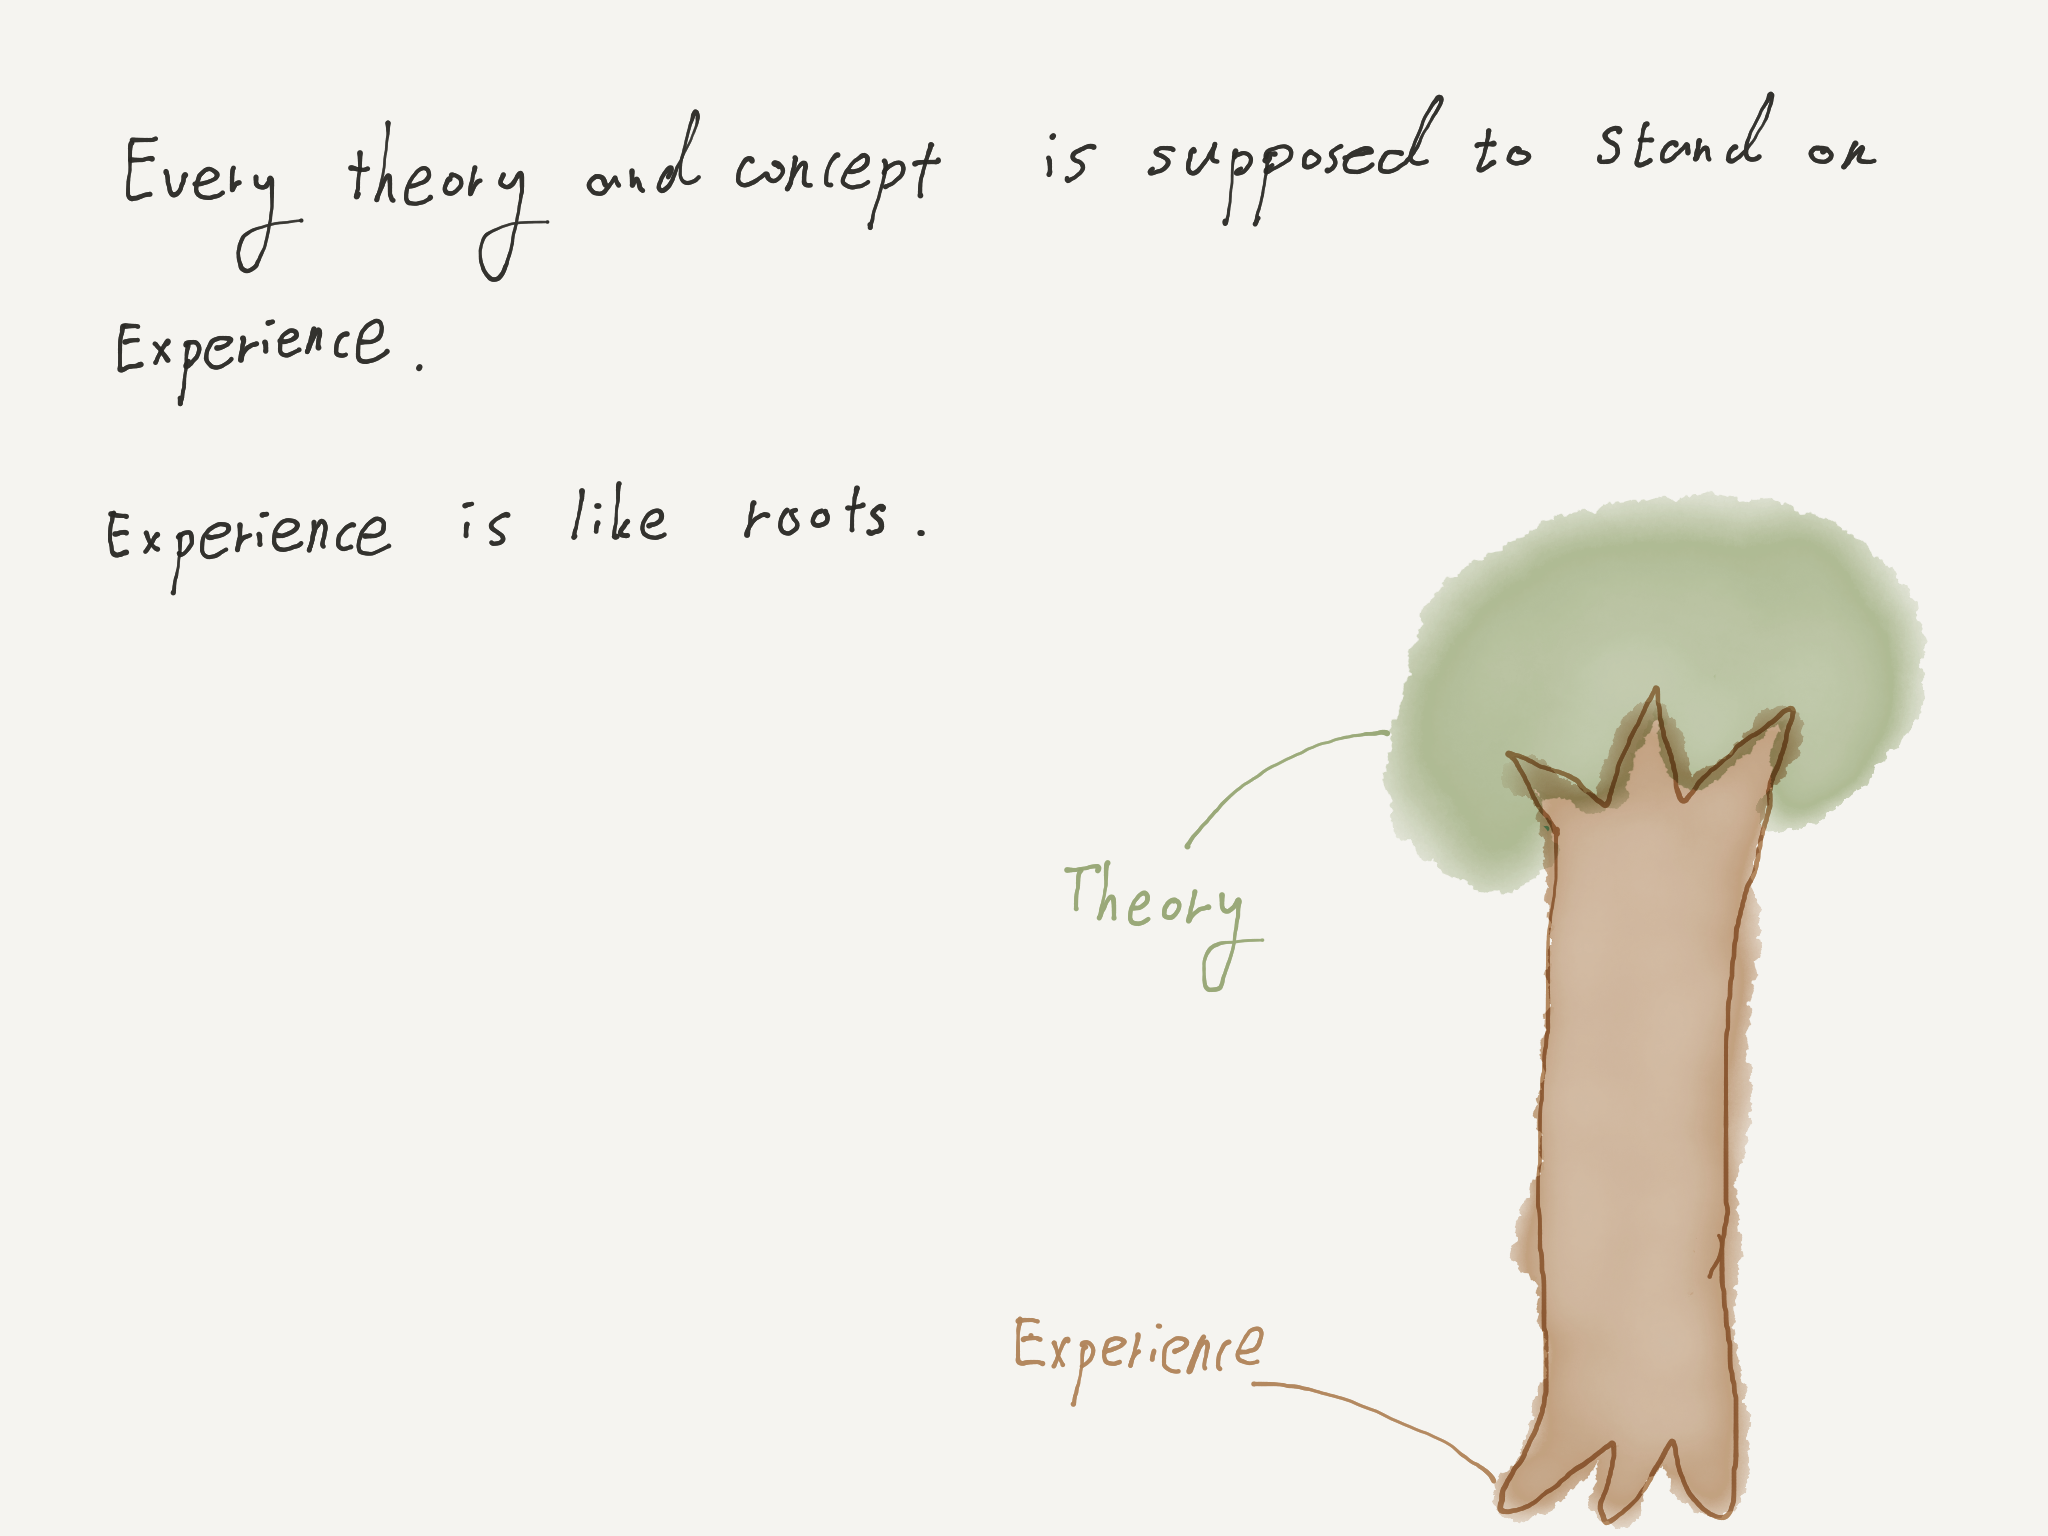 Every theory and concept is supposed to stand on
Experience.
Experience is like roots.
Theory
Experience